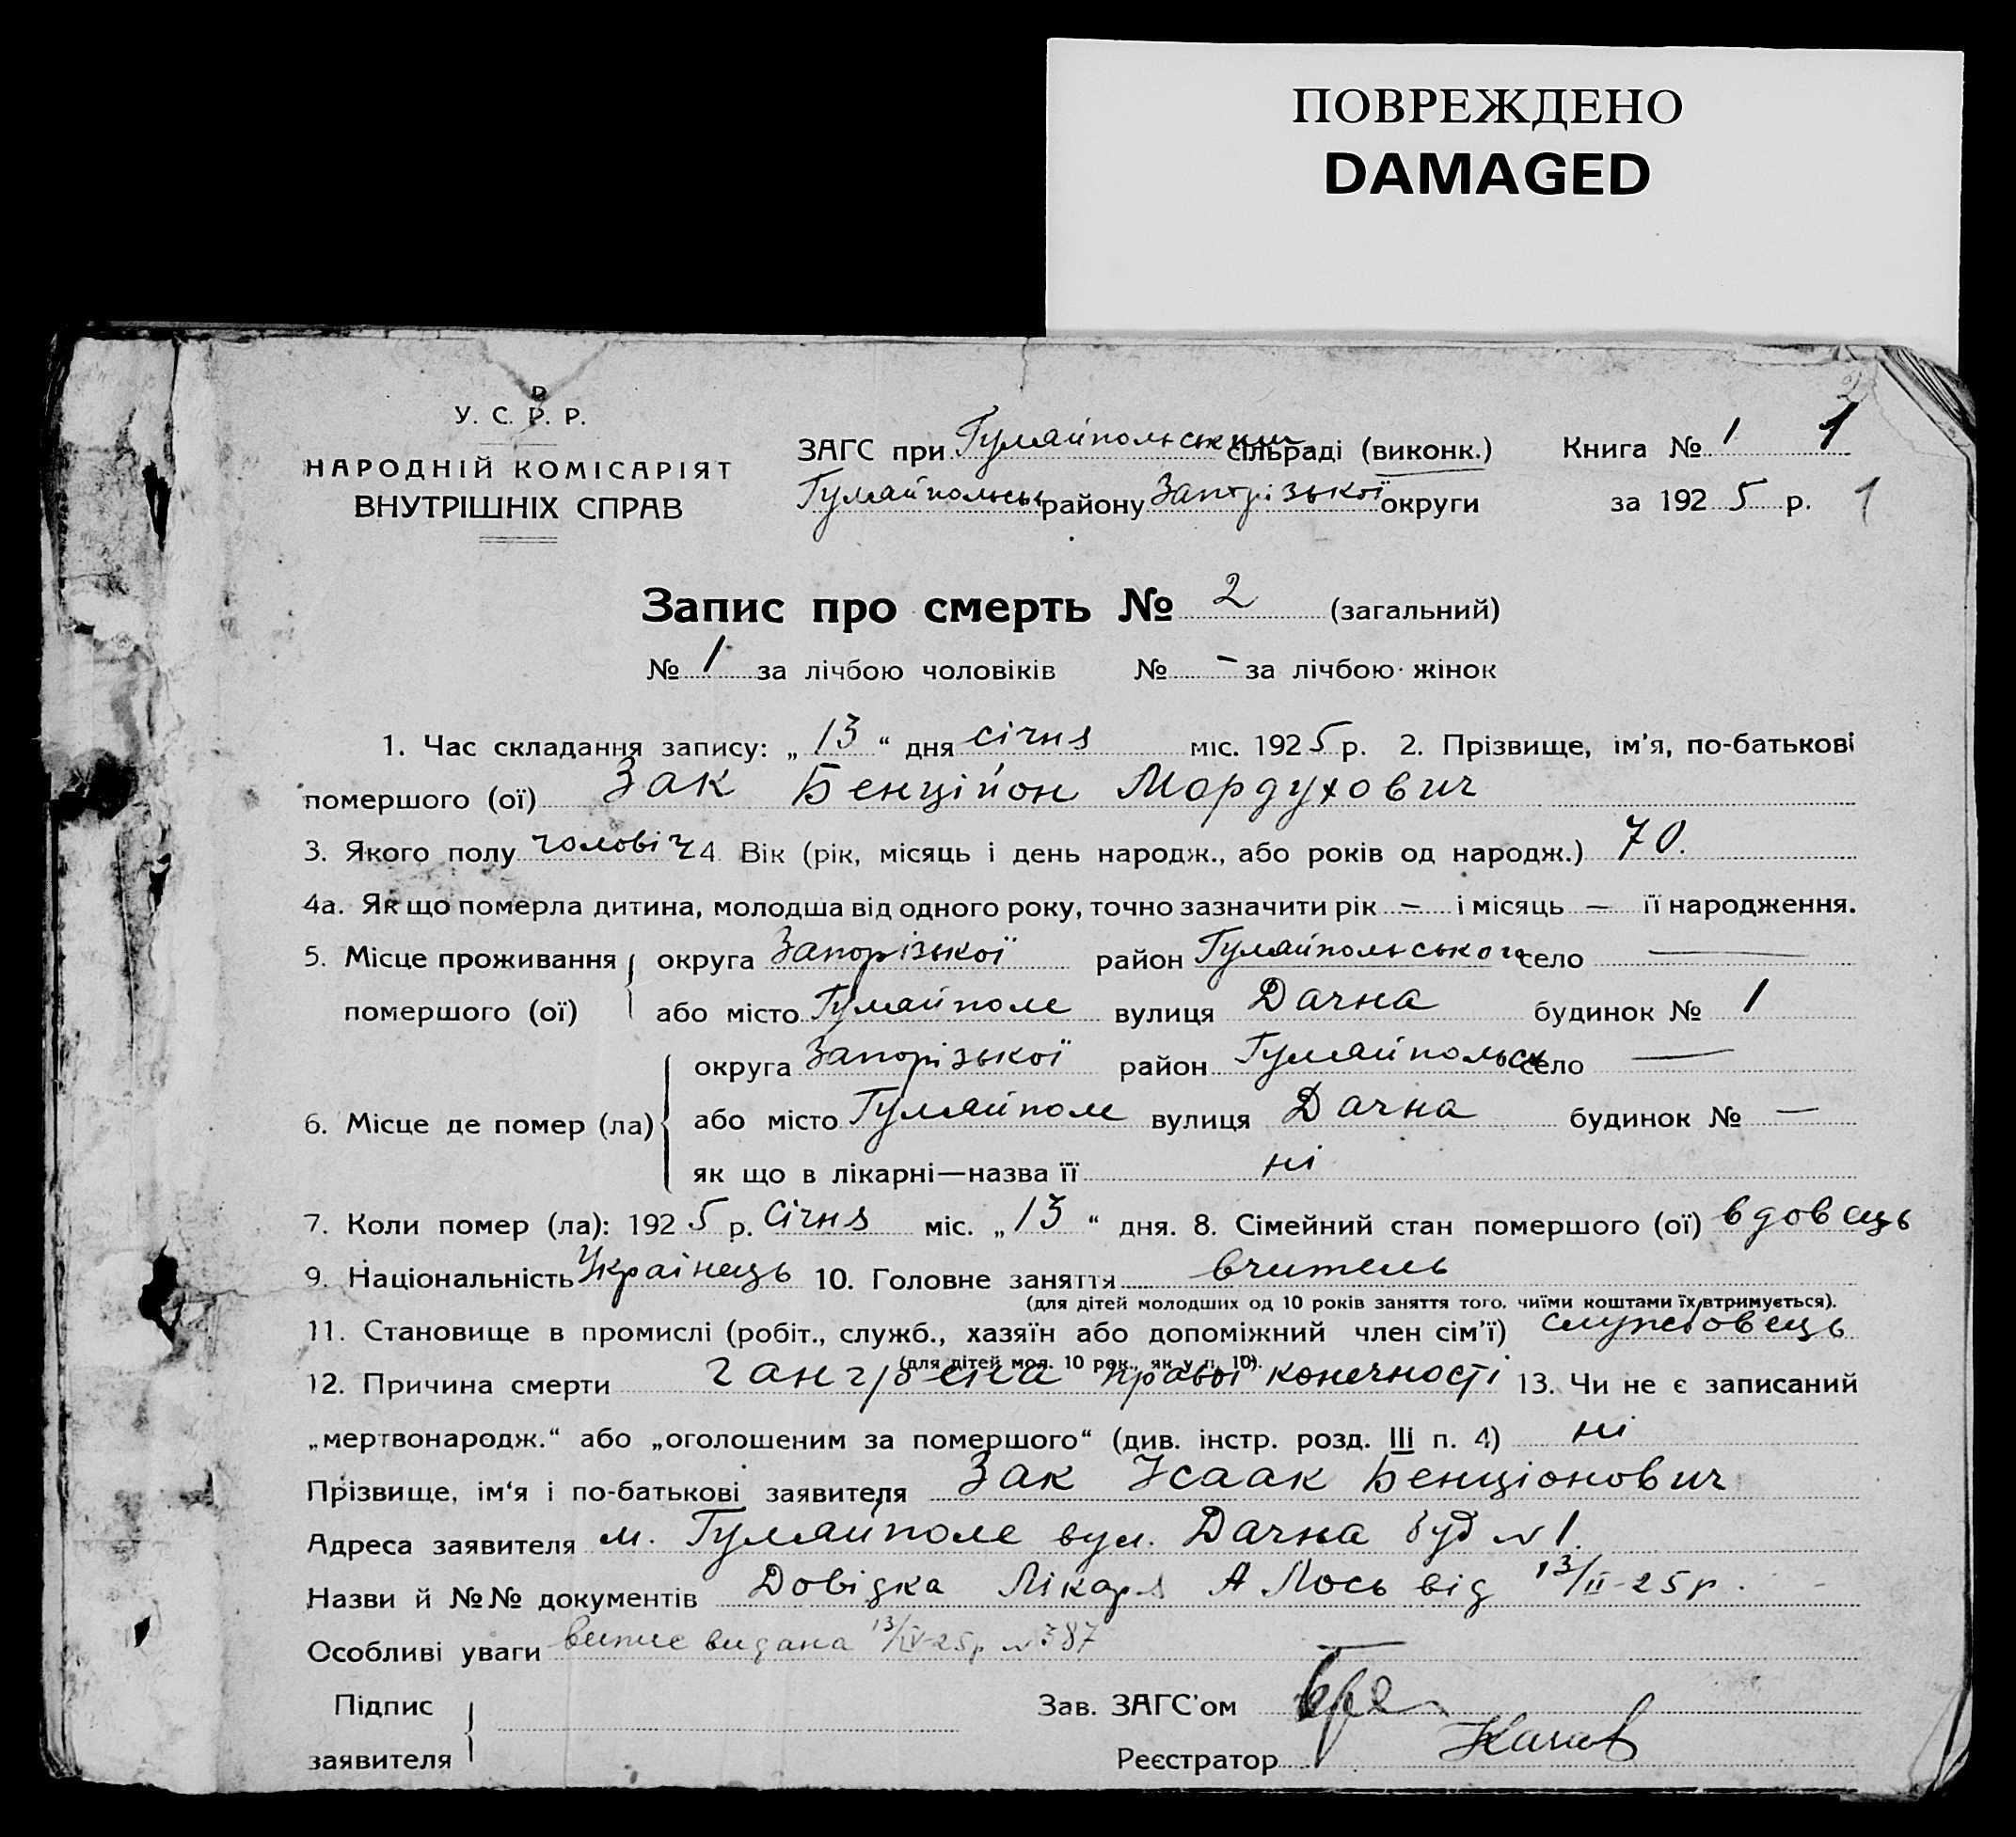 ПОВРЕЖДЕНО
DAMAGED
2
У. С. Р. Р.
НАРОДНІЙ КОМІСАРІЯТ
ВНУТРІШНІХ СПРАВ
ЗАГС при Гуляйпольським сільраді (виконк.)
Гуляйпольськ району Запорізької округи
Книга № 1 1
за 1925 р. 1
Запис про смерть № 2 (загальний)
№ 1 за лічбою чоловіків № - за лічбою жінок
1. Час складання запису: „13“ дня січня міс. 1925 р. 2. Прізвище, ім’я, по-батькові
помершого (ої) Зак Бенційон Мордухович
3. Якого полу чоловіч 4. Вік (рік, місяць і день народж., або років од народж.) 70.
4а. Як що померла дитина, молодша від одного року, точно зазначити рік — і місяць — її народження.
5. Місце проживання округа Запорізької район Гуляйпольського село —
помершого (ої) або місто Гуляйполе вулиця Дачна будинок № 1
округа Запорізької район Гуляйпольськ село —
6. Місце де помер (ла) або місто Гуляйполе вулиця Дачна будинок № —
як що в лікарні—назва її ні
7. Коли помер (ла): 1925 р. Січня міс. „13“ дня. 8. Сімейний стан помершого (ої) вдовець
9. Національність Українець 10. Головне заняття вчитель
(для дітей молодших од 10 років заняття того, чиїми коштами їх втримується).
11. Становище в промислі (робіт., служб., хазяїн або допоміжний член сім’ї) службовець
(для дітей мол. 10 рок., як у п. 10).
12. Причина смерти гангрена правої конечності 13. Чи не є записаний
„мертвонародж.“ або „оголошеним за помершого“ (див. інстр. розд. III п. 4) ні
Прізвище, ім‘я і по-батькові заявителя Зак Ісаак Бенціонович
Адреса заявителя м. Гуляйполе вул. Дачна буд № 1.
Назви й №№ документів Довідка Лікаря А Лось від 13/II-25 р.
Особливі уваги випис видана 13/IV-25 р № 387
Підпис
заявителя
Зав. ЗАГС’ом
Реєстратор